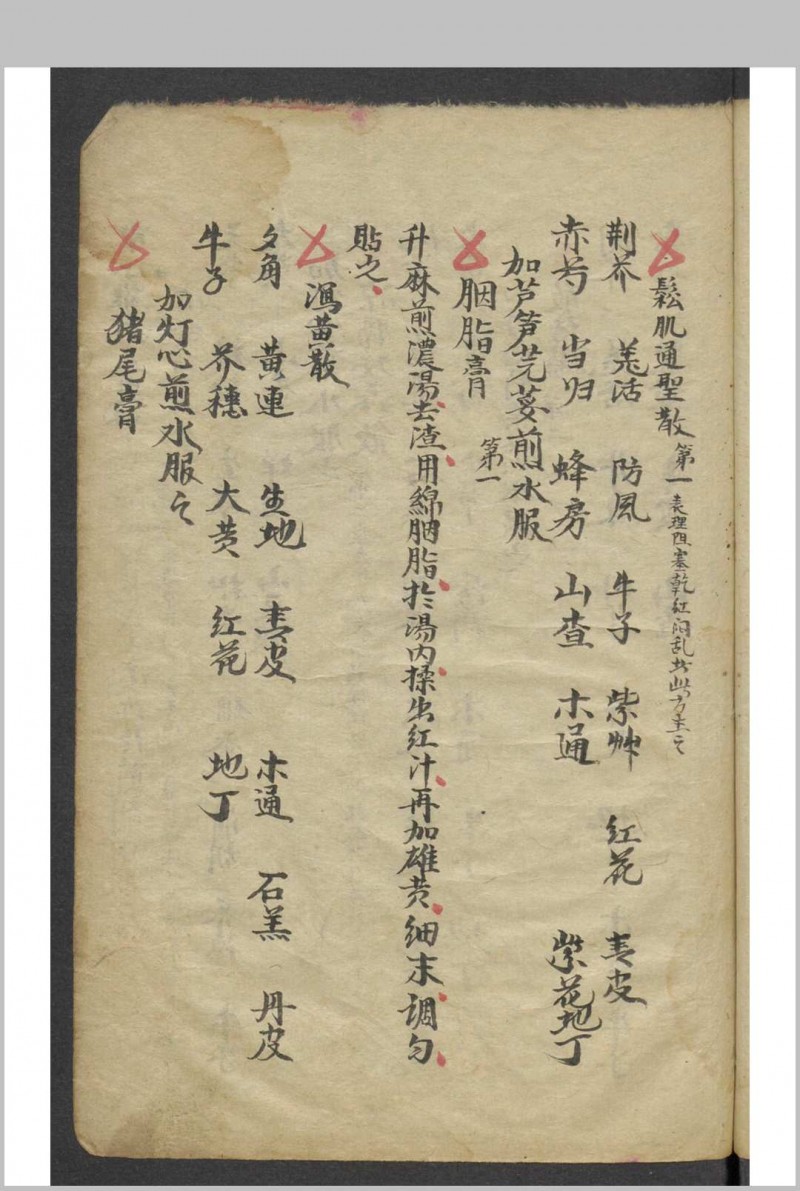 鬆肌通聖散 第一 表裡阻塞乾紅悶乱者此方主之
荆芥 羌活 防風 牛子 紫艸 红花 青皮
赤芍 当归 蜂房 山查 木通 紫花地丁
加芦笋芫荽煎水服
胭脂膏 第一
升麻煎濃湯去渣用綿胭脂於湯内揉出红汁再加雄黄细末調匀
貼之
瀉黄散
夕角 黄連 生地 青皮 木通 石羔 丹皮
牛子 芥穗 大黄 红花 地丁
加灯心煎水服之
猪尾膏